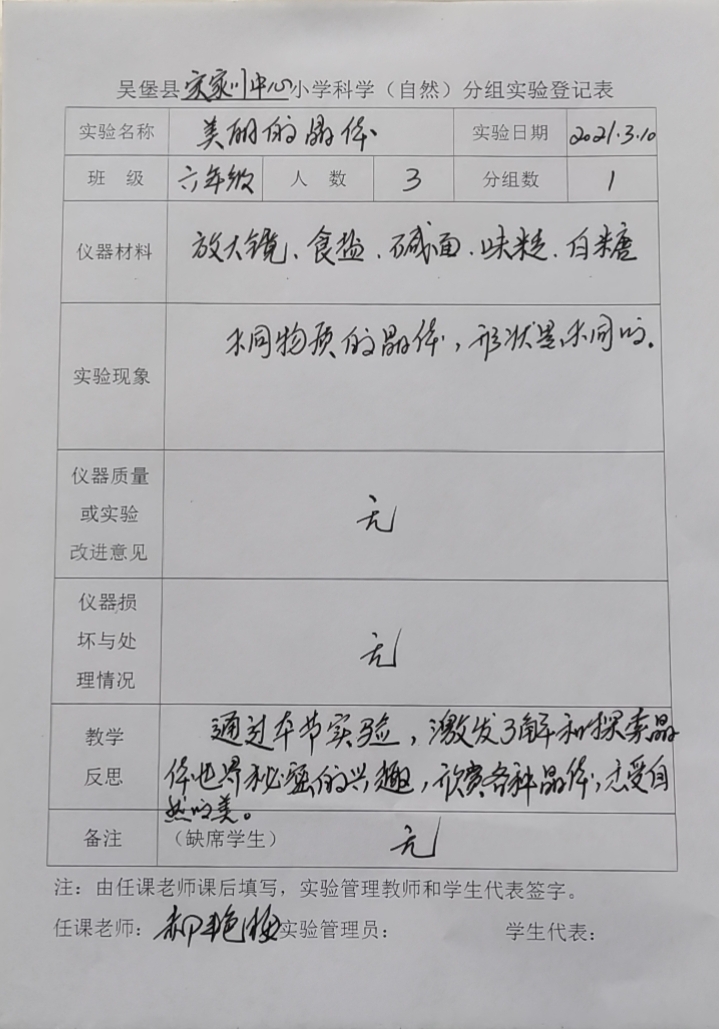 吴堡县宋家川中心小学科学（自然）分组实验登记表
实验名称 美丽的晶体 实验日期 2021.3.10
班 级 六年级 人 数 3 分组数 1
仪器材料 放大镜、食盐、碱面、味精、白糖
不同物质的晶体，形状是不同的.
实验现象
仪器质量
或实验 无
改进意见
仪器损
坏与处 无
理情况
教学 通过本节实验，激发了解和探索晶
反思 体世界秘密的兴趣，欣赏各种晶体，感受自
然的美。
备注 （缺席学生） 无
注：由任课老师课后填写，实验管理教师和学生代表签字。
任课老师：郝艳梅 实验管理员： 学生代表：